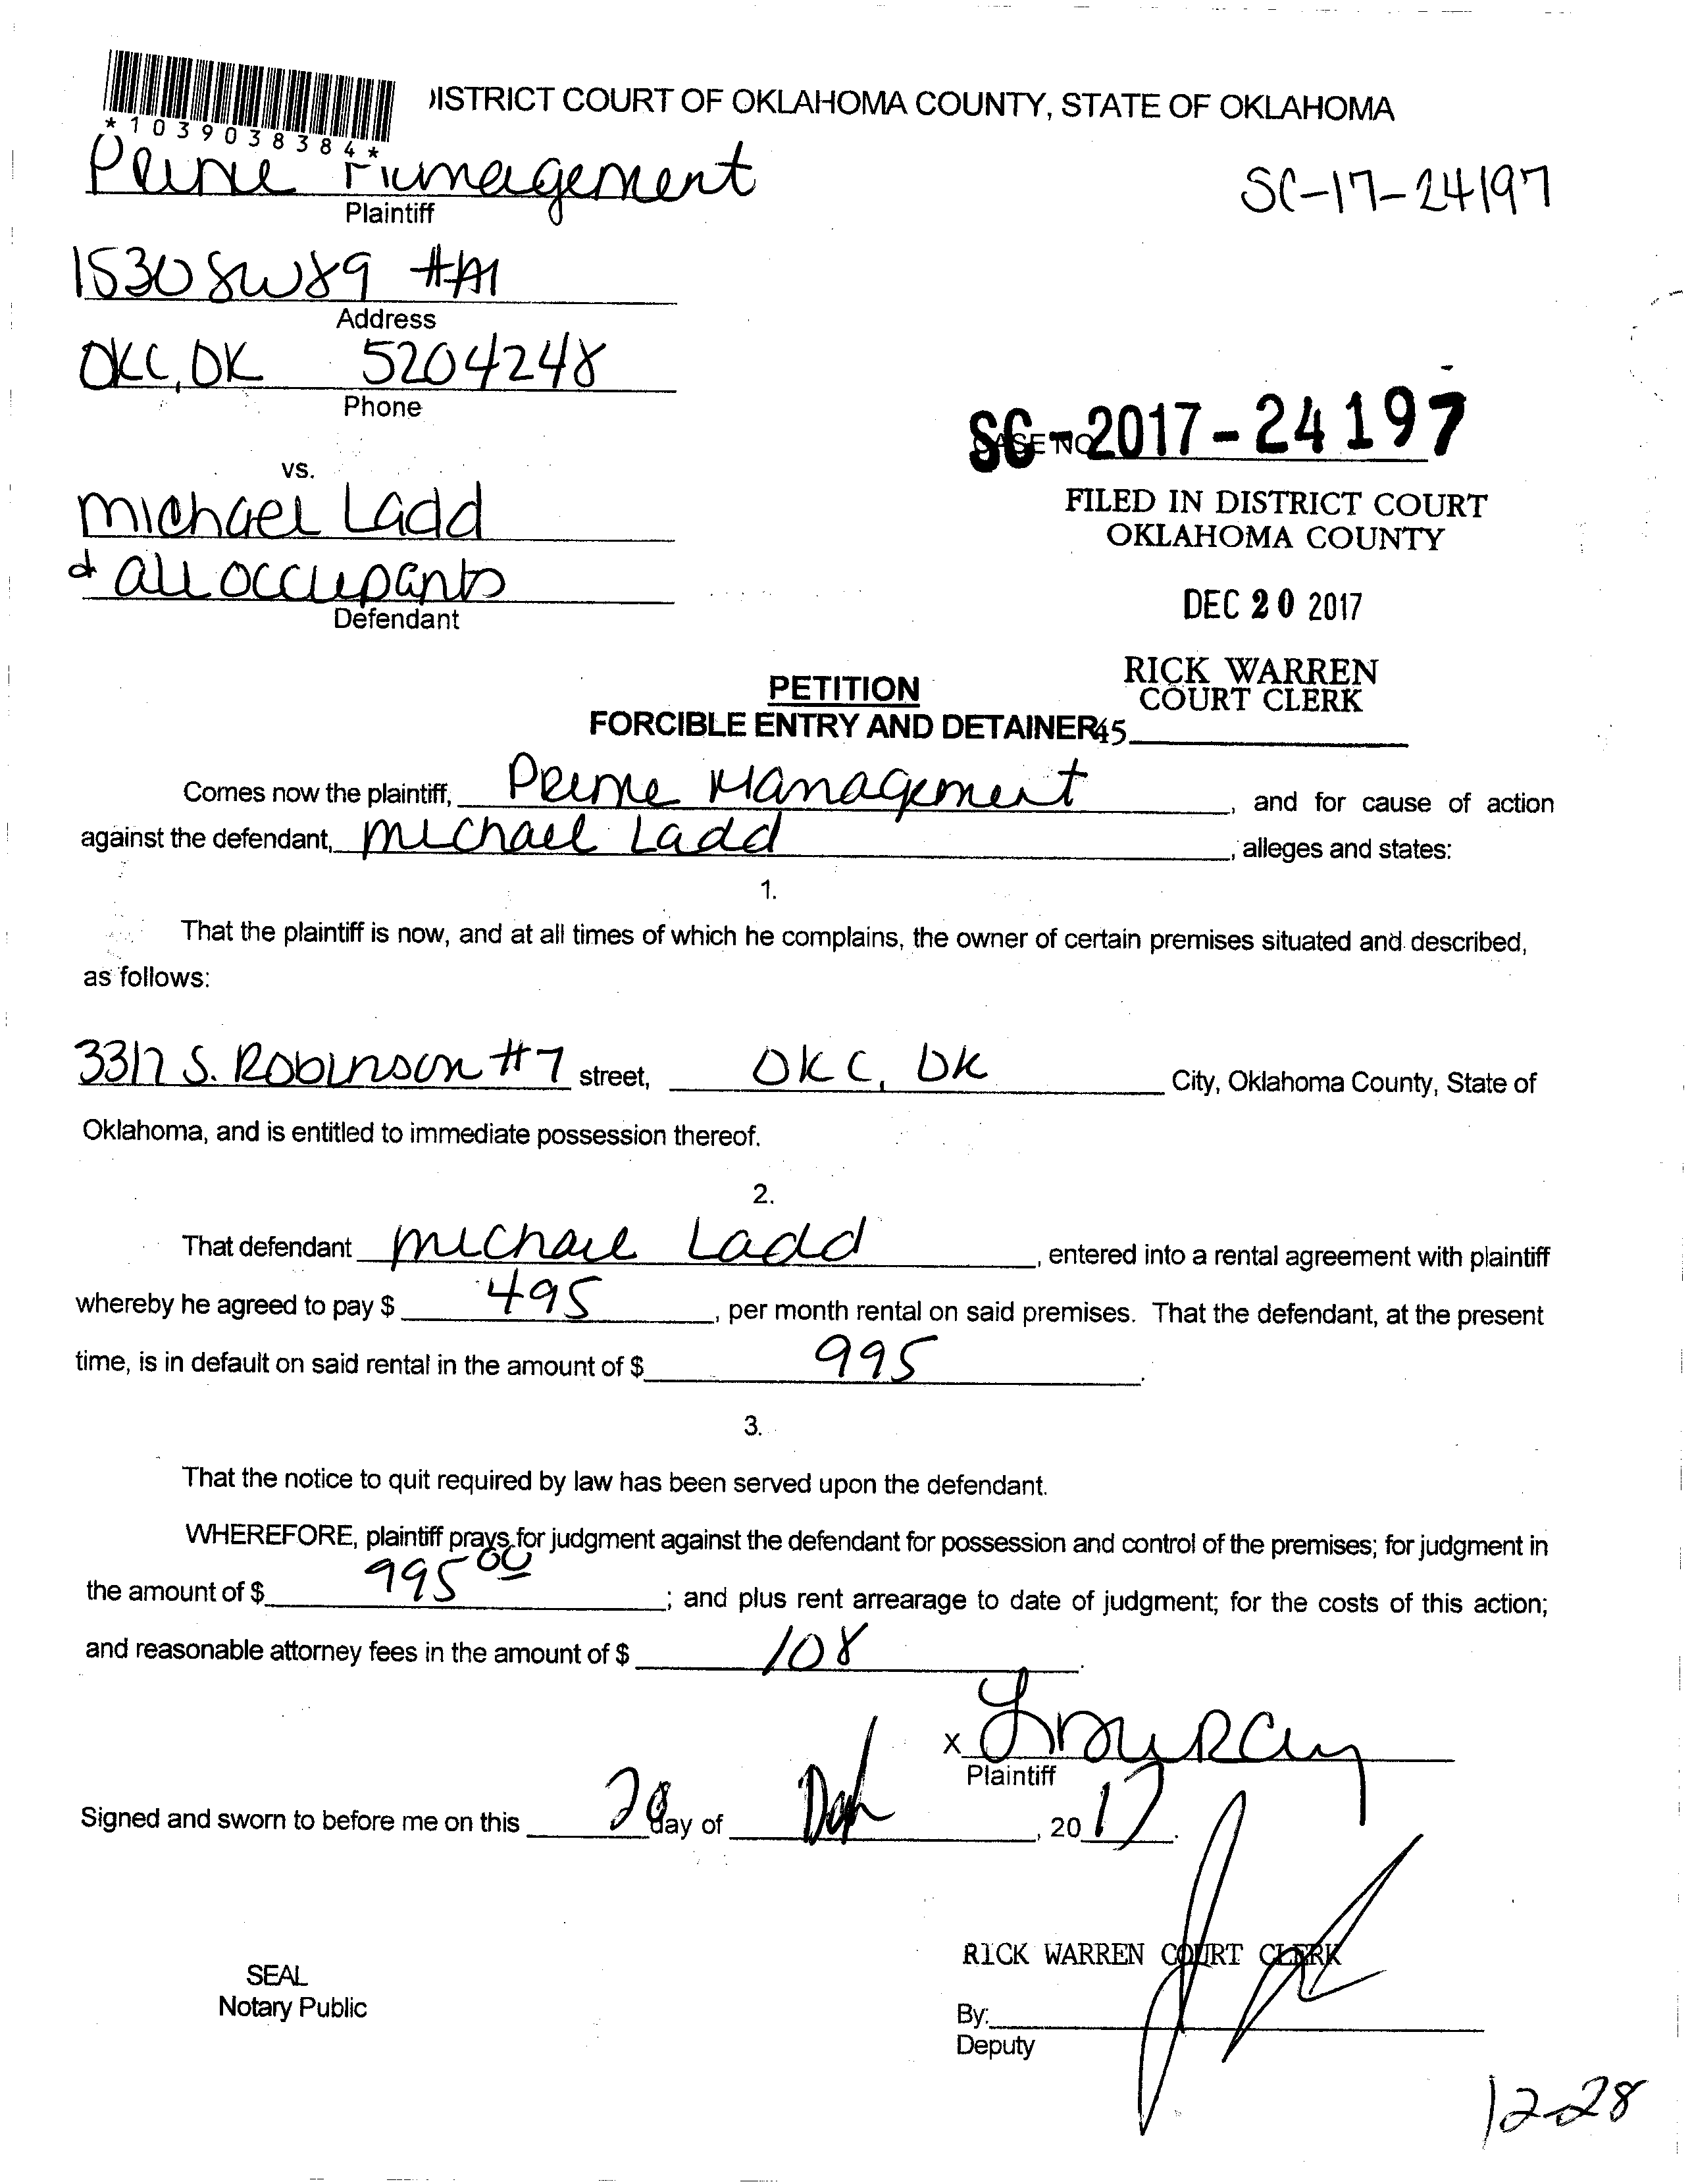 *1039038384*
DISTRICT COURT OF OKLAHOMA COUNTY, STATE OF OKLAHOMA
Prime Management
Plaintiff
SC-17-24197
1530 SW 89 #A1
Address
OKC, OK 5204248
Phone
CASE NO. SC-2017-24197
vs.
FILED IN DISTRICT COURT
OKLAHOMA COUNTY
Michael Ladd
& all occupants
Defendant
DEC 20 2017
RICK WARREN
COURT CLERK
PETITION
FORCIBLE ENTRY AND DETAINER
45
Comes now the plaintiff, Prime Management, and for cause of action
against the defendant, Michael Ladd, alleges and states:
1.
That the plaintiff is now, and at all times of which he complains, the owner of certain premises situated and described,
as follows:
3317 S. Robinson #7 street, OKC, OK City, Oklahoma County, State of
Oklahoma, and is entitled to immediate possession thereof.
2.
That defendant Michael Ladd, entered into a rental agreement with plaintiff
whereby he agreed to pay $ 495, per month rental on said premises. That the defendant, at the present
time, is in default on said rental in the amount of $ 995.
3.
That the notice to quit required by law has been served upon the defendant.
WHEREFORE, plaintiff prays for judgment against the defendant for possession and control of the premises; for judgment in
the amount of $ 995 00; and plus rent arrearage to date of judgment; for the costs of this action;
and reasonable attorney fees in the amount of $ 108.
X
Plaintiff
Signed and sworn to before me on this 20 day of Dec, 2017.
RICK WARREN COURT CLERK
SEAL
Notary Public
By:
Deputy
12-28